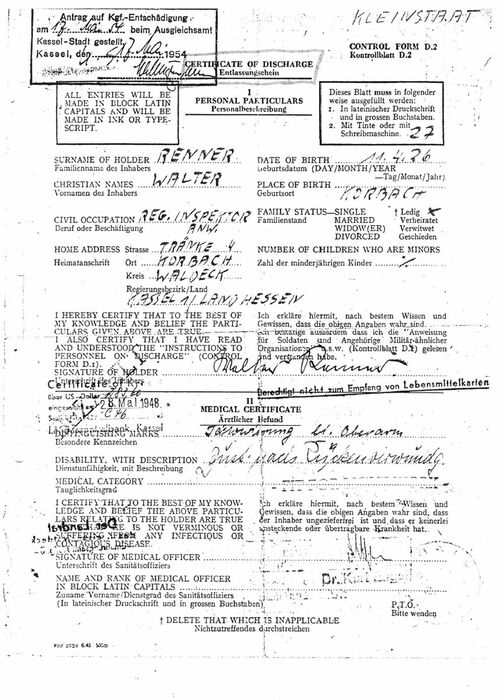 KLEINSTAAT
Antrag auf Kgf.-Entschädigung
am beim Ausgleichsamt
Kassel-Stadt gestellt.
Kassel, den 1954
CONTROL FORM D.2
Kontrollblatt D.2
CERTIFICATE OF DISCHARGE
Entlassungschein
I
PERSONAL PARTICULARS
Personalbeschreibung
ALL ENTRIES WILL BE
MADE IN BLOCK LATIN
CAPITALS AND WILL BE
MADE IN INK OR TYPE-
SCRIPT.
Dieses Blatt muss in folgender
weise ausgefüllt werden:
1. In lateinischer Druckschrift
und in grossen Buchstaben.
2. Mit Tinte oder mit
Schreibmaschine.
27
SURNAME OF HOLDER RENNER
Familienname des Inhabers
CHRISTIAN NAMES WALTER
Vornamen des Inhabers
CIVIL OCCUPATION REG. INSPEKTOR
Beruf oder Beschäftigung ANW.
HOME ADDRESS Strasse TRÄNKE 4
Heimatanschrift Ort KORBACH
Kreis WALDECK
Regierungsbezirk/Land
KASSEL 1/LAND HESSEN
DATE OF BIRTH 11.4.26
Geburtsdatum (DAY/MONTH/YEAR
—Tag/Monat/Jahr)
PLACE OF BIRTH KORBACH
Geburtsort
FAMILY STATUS—SINGLE † Ledig
Familienstand MARRIED Verheiratet
WIDOW(ER) Verwitwet
DIVORCED Geschieden
NUMBER OF CHILDREN WHO ARE MINORS
Zahl der minderjährigen Kinder
I HEREBY CERTIFY THAT TO THE BEST OF
MY KNOWLEDGE AND BELIEF THE PARTI-
CULARS GIVEN ABOVE ARE TRUE.
I ALSO CERTIFY THAT I HAVE READ
AND UNDERSTOOD THE "INSTRUCTIONS TO
PERSONNEL ON DISCHARGE" (CONTROL
FORM D.1).
SIGNATURE OF HOLDER
Unterschrift des Inhabers
Ich erkläre hiermit, nach bestem Wissen und
Gewissen, dass die obigen Angaben wahr sind.
Ich bestätige ausserdem dass ich die "Anweisung
für Soldaten und Angehörige Militär-ähnlicher
Organisationen" u.s.w. (Kontrollblatt D.1) gelesen
und verstanden habe.
Walter Renner
Berechtigt nicht zum Empfang von Lebensmittelkarten
Certificate of
über US-Dollar
28. Mai 1948
Kassel
II
MEDICAL CERTIFICATE
Ärztlicher Befund
DISTINGUISHING MARKS
Besondere Kennzeichen
DISABILITY, WITH DESCRIPTION
Dienstunfähigkeit, mit Beschreibung
MEDICAL CATEGORY
Tauglichkeitsgrad
I CERTIFY THAT TO THE BEST OF MY KNOW-
LEDGE AND BELIEF THE ABOVE PARTICU-
LARS RELATING TO THE HOLDER ARE TRUE
IS NOT VERMINOUS OR
SUFFERING FROM ANY INFECTIOUS OR
CONTAGIOUS DISEASE.
Ich erkläre hiermit, nach bestem Wissen und
Gewissen, dass die obigen Angaben wahr sind, dass
der Inhaber ungezieferfrei ist und dass er keinerlei
ansteckende oder übertragbare Krankheit hat.
SIGNATURE OF MEDICAL OFFICER
Unterschrift des Sanitätsoffiziers
NAME AND RANK OF MEDICAL OFFICER
IN BLOCK LATIN CAPITALS
Zuname/Vorname/Dienstgrad des Sanitätsoffiziers
(In lateinischer Druckschrift und in grossen Buchstaben)
Dr.
P.T.O.
Bitte wenden
† DELETE THAT WHICH IS INAPPLICABLE
Nichtzutreffendes durchstreichen